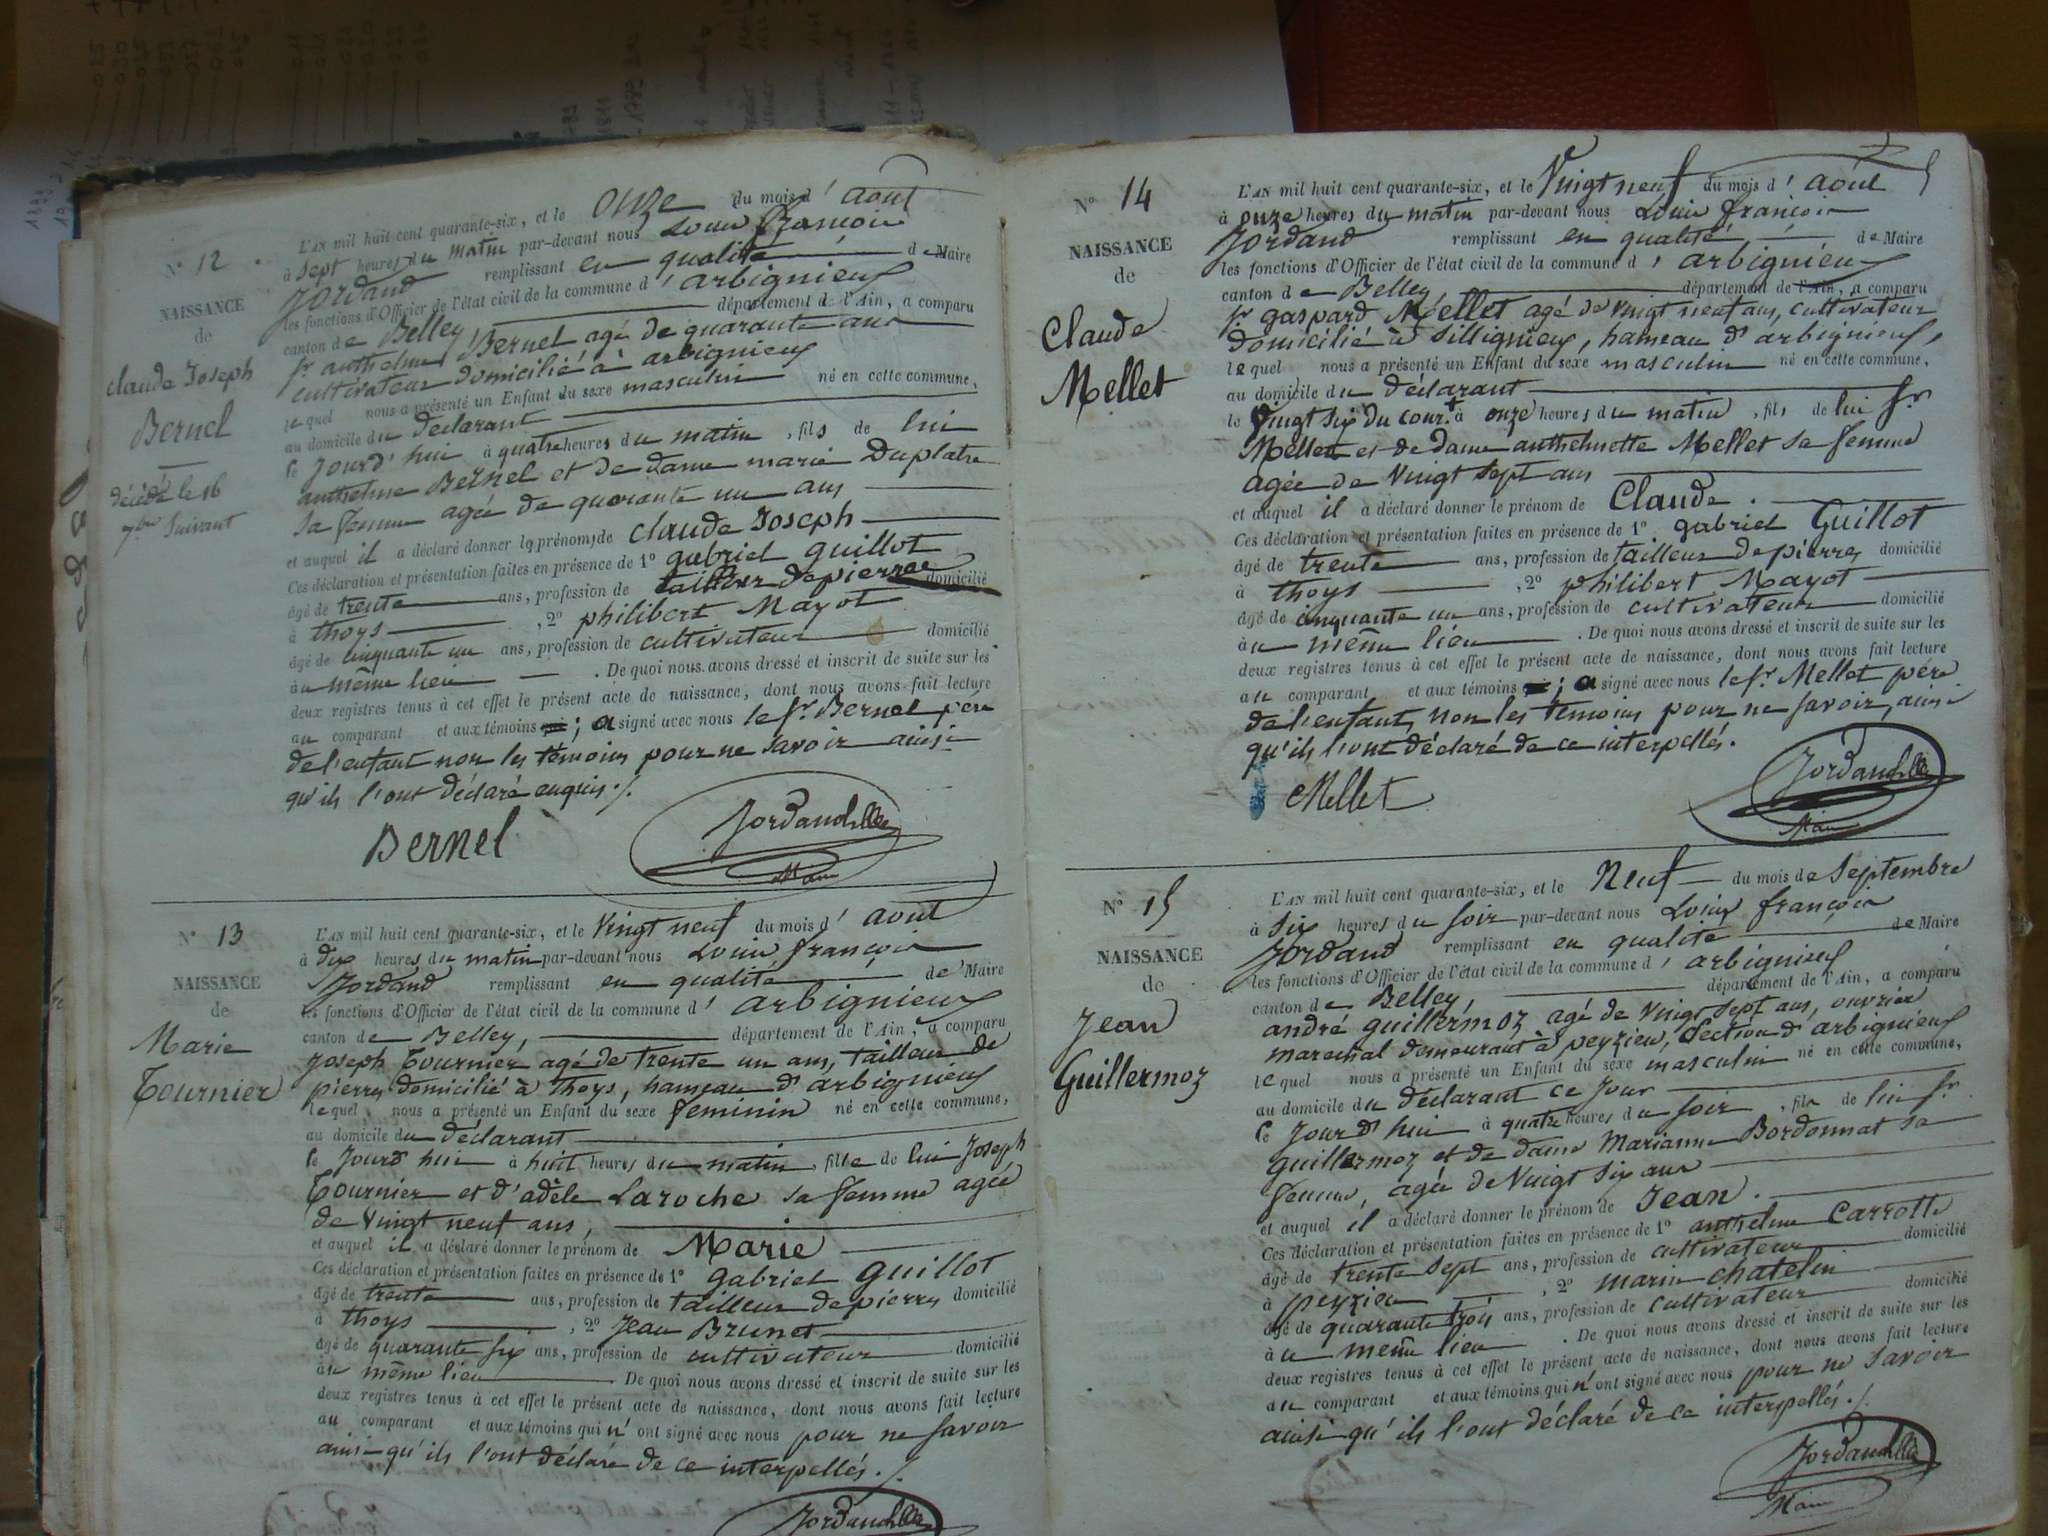 N° 12
NAISSANCE
de
Claude Joseph
Bernel
décédé le 16
7bre suivant
L'AN mil huit cent quarante-six, et le onze du mois d'août
à sept heures du matin par-devant nous Louis François
Jordand remplissant en qualité de Maire
les fonctions d'Officier de l'état civil de la commune d'arbignieux
canton de Belley, département de l'Ain, a comparu
Sr anthelme Bernel agé de quarante ans
cultivateur domicilié à arbignieux
lequel nous a présenté un Enfant du sexe masculin né en cette commune,
au domicile du déclarant
le jourd'hui à quatre heures du matin, fils de lui
anthelme Bernel et de dame marie Duplatre
sa femme agée de quarante un ans
et auquel il a déclaré donner les prénoms de Claude Joseph
Ces déclaration et présentation faites en présence de 1° gabriel Guillot
âgé de trente ans, profession de tailleur de pierres domicilié
à Thoys, 2° philibert Mayot
âgé de cinquante un ans, profession de cultivateur domicilié
au même lieu. De quoi nous avons dressé et inscrit de suite sur les
deux registres tenus à cet effet le présent acte de naissance, dont nous avons fait lecture
au comparant et aux témoins ; a signé avec nous le Sr. Bernel père
de l'enfant non les témoins pour ne savoir ainsi
qu'ils l'ont déclaré enquis ./.
Bernel
Jordand
Maire
N° 13
NAISSANCE
de
Marie
Tournier
L'AN mil huit cent quarante-six, et le Vingt neuf du mois d'août
à dix heures du matin par-devant nous Louis françois
Jordand remplissant en qualité de Maire
les fonctions d'Officier de l'état civil de la commune d'arbignieux
canton de Belley, département de l'Ain, a comparu
Joseph Tournier agé de trente un ans, tailleur de
pierres domicilié à Thoys, hameau d'arbignieux
lequel nous a présenté un Enfant du sexe féminin né en cette commune,
au domicile du déclarant
le jourd'hui à huit heures du matin, fille de lui Joseph
Tournier et d'adèle Laroche sa femme agée
de Vingt neuf ans,
et auquel il a déclaré donner le prénom de Marie
Ces déclaration et présentation faites en présence de 1° gabriel Guillot
âgé de trente ans, profession de tailleur de pierres domicilié
à thoys, 2° Jean Brunet
âgé de quarante six ans, profession de cultivateur domicilié
au même lieu. De quoi nous avons dressé et inscrit de suite sur les
deux registres tenus à cet effet le présent acte de naissance, dont nous avons fait lecture
au comparant et aux témoins qui n'ont signé avec nous pour ne savoir
ainsi qu'ils l'ont déclaré de ce interpellés ./.
Jordand
N° 14
NAISSANCE
de
Claude
Mellet
L'AN mil huit cent quarante-six, et le Vingt neuf du mois d'août
à onze heures du matin par-devant nous Louis françois
Jordand remplissant en qualité de Maire
les fonctions d'Officier de l'état civil de la commune d'arbignieux
canton de Belley, département de l'Ain, a comparu
Sr gaspard Mellet agé de Vingt neuf ans, cultivateur
domicilié à Sillignieux, hameau d'arbignieux,
lequel nous a présenté un Enfant du sexe masculin né en cette commune,
au domicile du déclarant
le Vingt six du cour.t à onze heures du matin, fils de lui Sr
Mellet et de dame anthelmette Mellet sa femme
agée de Vingt sept ans
et auquel il a déclaré donner le prénom de Claude.
Ces déclaration et présentation faites en présence de 1° gabriel Guillot
âgé de trente ans, profession de tailleur de pierres domicilié
à Thoys, 2° philibert Mayot
âgé de cinquante un ans, profession de cultivateur domicilié
au même lieu. De quoi nous avons dressé et inscrit de suite sur les
deux registres tenus à cet effet le présent acte de naissance, dont nous avons fait lecture
au comparant et aux témoins ; a signé avec nous le Sr. Mellet père
de l'enfant, non les témoins pour ne savoir, ainsi
qu'ils l'ont déclaré de ce interpellés.
Mellet
Jordand
Maire
N° 15
NAISSANCE
de
Jean
Guillermoz
L'AN mil huit cent quarante-six, et le Neuf du mois de Septembre
à six heures du soir par-devant nous Louis françois
Jordand remplissant en qualité de Maire
les fonctions d'Officier de l'état civil de la commune d'arbignieux
canton de Belley, département de l'Ain, a comparu
andré guillermoz agé de Vingt sept ans, ouvrier
marechal demeurant à peyzieu, Section d'arbignieux
lequel nous a présenté un Enfant du sexe masculin né en cette commune,
au domicile du déclarant ce jour
le Jourd'hui à quatre heures du soir, fils de lui Sr
guillermoz et de dame Marianne Bordonnat sa
femme, agée de Vingt six ans
et auquel il a déclaré donner le prénom de Jean.
Ces déclaration et présentation faites en présence de 1° anthelme Carrotte
âgé de trente sept ans, profession de cultivateur domicilié
à peyzieu, 2° marin chatelin
âgé de quarante trois ans, profession de cultivateur domicilié
au même lieu. De quoi nous avons dressé et inscrit de suite sur les
deux registres tenus à cet effet le présent acte de naissance, dont nous avons fait lecture
au comparant et aux témoins qui n'ont signé avec nous pour ne savoir
ainsi qu'ils l'ont déclaré de ce interpellés ./.
Jordand
Maire